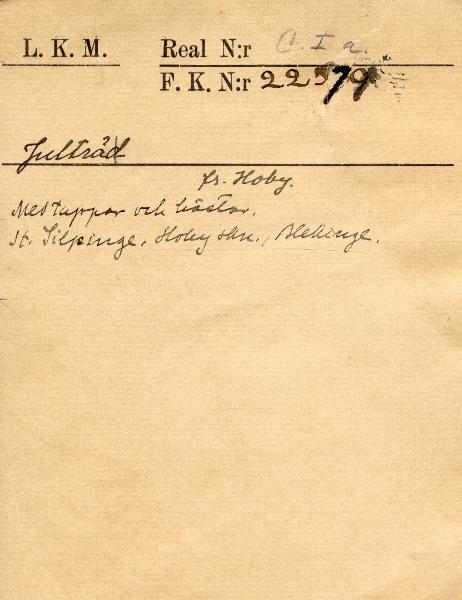 L. K. M. Real N:r C. I a.
F. K. N:r 22579
Julträd
fr. Hoby.
Med tuppar och hästar.
St. Silpinge, Hoby skn., Blekinge.